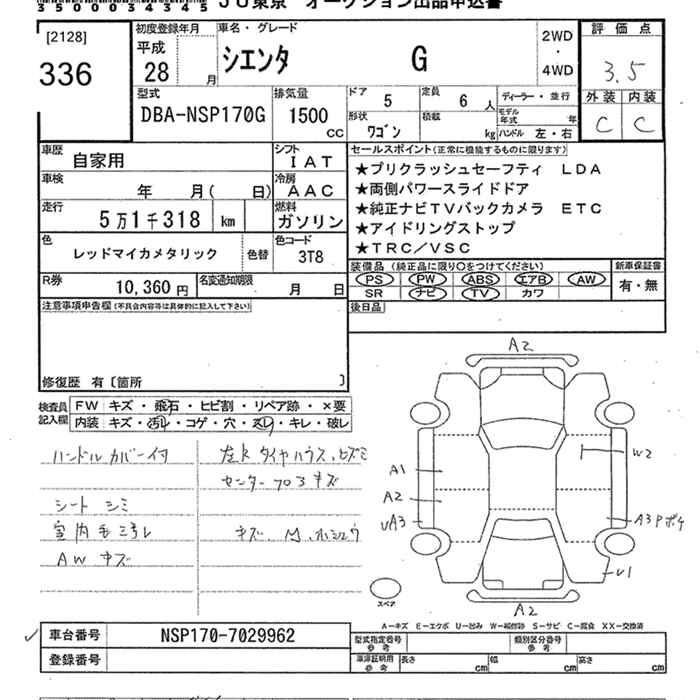 35000034345 JU東京 オークション出品申込書
[2128]
336
初度登録年月
平成
28 月
車名・グレード
シエンタ G
2WD
・
4WD
評価点
3.5
外装 内装
C C
型式
DBA-NSP170G
排気量
1500
CC
ドア 5
定員 6 人
形状 ワゴン
積載 kg
ディーラー・並行
モデル年式 年
ハンドル 左・右
車歴 自家用
シフト IAT
車検 年 月( 日)
冷房 AAC
走行 5万1千318 km
燃料 ガソリン
色 レッドマイカメタリック 色替
色コード 3T8
R券 10,360 円
名変通知期限 月 日
セールスポイント(正常に機能するものに限ります)
★プリクラッシュセーフティ LDA
★両側パワースライドドア
★純正ナビTVバックカメラ ETC
★アイドリングストップ
★TRC/VSC
装備品(純正品に限り○をつけてください)
PS PW ABS エアB AW
SR ナビ TV カワ
新車保証書
有・無
後日品
注意事項申告欄(不具合内容等は具体的に記入して下さい)
修復歴 有〔箇所 〕
検査員
記入欄
FW キズ・飛石・ヒビ割・リペア跡・×要
内装 キズ・汚レ・コゲ・穴・スレ・キレ・破レ
ハンドルカバー付
シート シミ
AW キズ
A2
A1
A2
UA3
W2
A3Pボケ
U1
A2
スペア
A−キズ E−エクボ U−凹み W−補修跡 S−サビ C−腐食 XX−交換済
車台番号 NSP170-7029962
登録番号
型式指定番号
参考
類別区分番号
参考
車庫証明用
参考
長さ cm 幅 cm 高さ cm